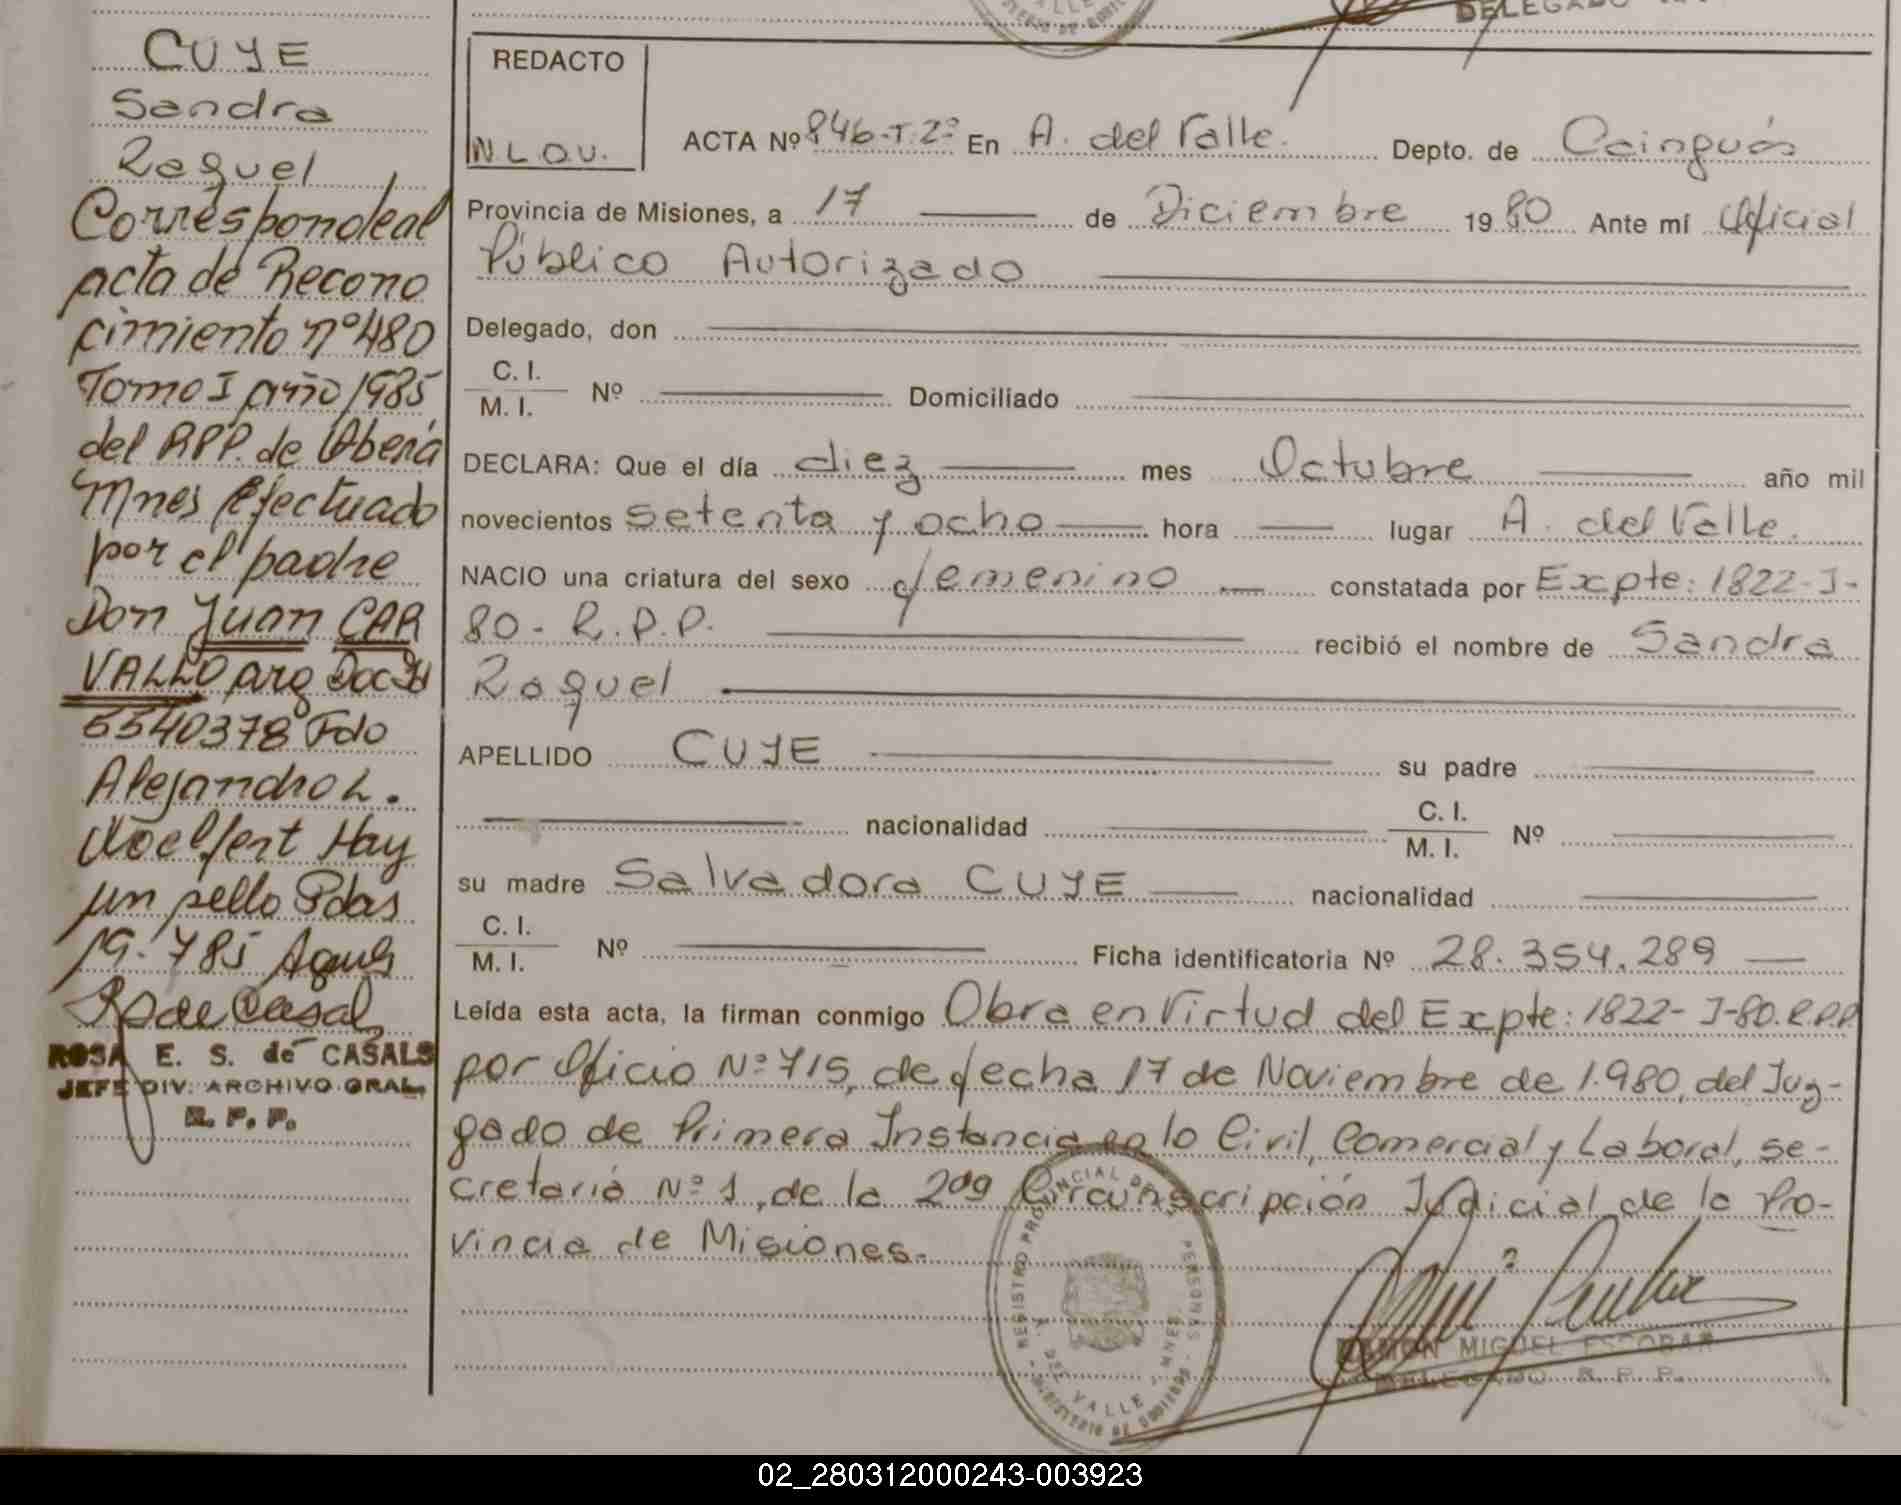 CUYE
Sandra
Raquel
Corresponde al
acta de Recono
cimiento nº 480
Tomo I año 1985
del RPP. de Oberá
Mnes Efectuado
por el padre
Don Juan CAR
VALLO arg Doc Id
5540378 Fdo
Alejandro L.
Hay
un sello Pdas
19.785
R S de Casals
ROSA E. S. de CASALS
JEFE DIV. ARCHIVO GRAL.
R. P. P.
DELEGADO
REDACTO
N.L.O.V.
ACTA Nº 846-T:2º En A. del Valle. Depto. de Cainguás
Provincia de Misiones, a 17 de Diciembre 1980 Ante mí Oficial
Público Autorizado
Delegado, don
C. I.
M. I. Nº Domiciliado
DECLARA: Que el día diez mes Octubre año mil
novecientos setenta y ocho hora lugar A. del Valle.
NACIO una criatura del sexo femenino constatada por Expte: 1822-J-
80- R.P.P. recibió el nombre de Sandra
Raquel
APELLIDO CUYE su padre
nacionalidad C. I.
M. I. Nº
su madre Salvadora CUYE nacionalidad
C. I.
M. I. Nº Ficha identificatoria Nº 28.354.289
Leída esta acta, la firman conmigo Obra en Virtud del Expte: 1822-J-80.R.P.P.
por Oficio Nº 715, de fecha 17 de Noviembre de 1.980, del Juz-
gado de Primera Instancia en lo Civil, Comercial y Laboral, se-
cretaría Nº 1, de la 2da Circunscripción Judicial de la Pro-
vincia de Misiones.
REGISTRO PROVINCIAL DE LAS PERSONAS
A. DEL VALLE - MNES.
MINISTERIO DE GOBIERNO
RAMON MIGUEL ESCOBAR
DELEGADO R. P. P.
02_280312000243-003923